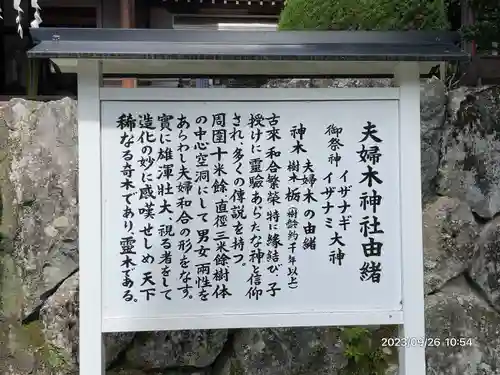 夫婦木神社由緒
御祭神 イザナギ大神
イザナミ
夫婦木の由緒
神木 樹木 栃(樹齢約千年以上)
古来、和合繁栄特に縁結び、子
授けに霊験あらたな神と信仰
され、多くの伝説を持つ。
周囲十米餘、直徑三米餘樹体
の中心空洞にして男女両性を
あらわし夫婦和合の形をなす。
實に雄渾壮大、視る者をして
造化の妙に感嘆せしめ天下
稀なる奇木であり、霊木である。
2023/09/26 10:54